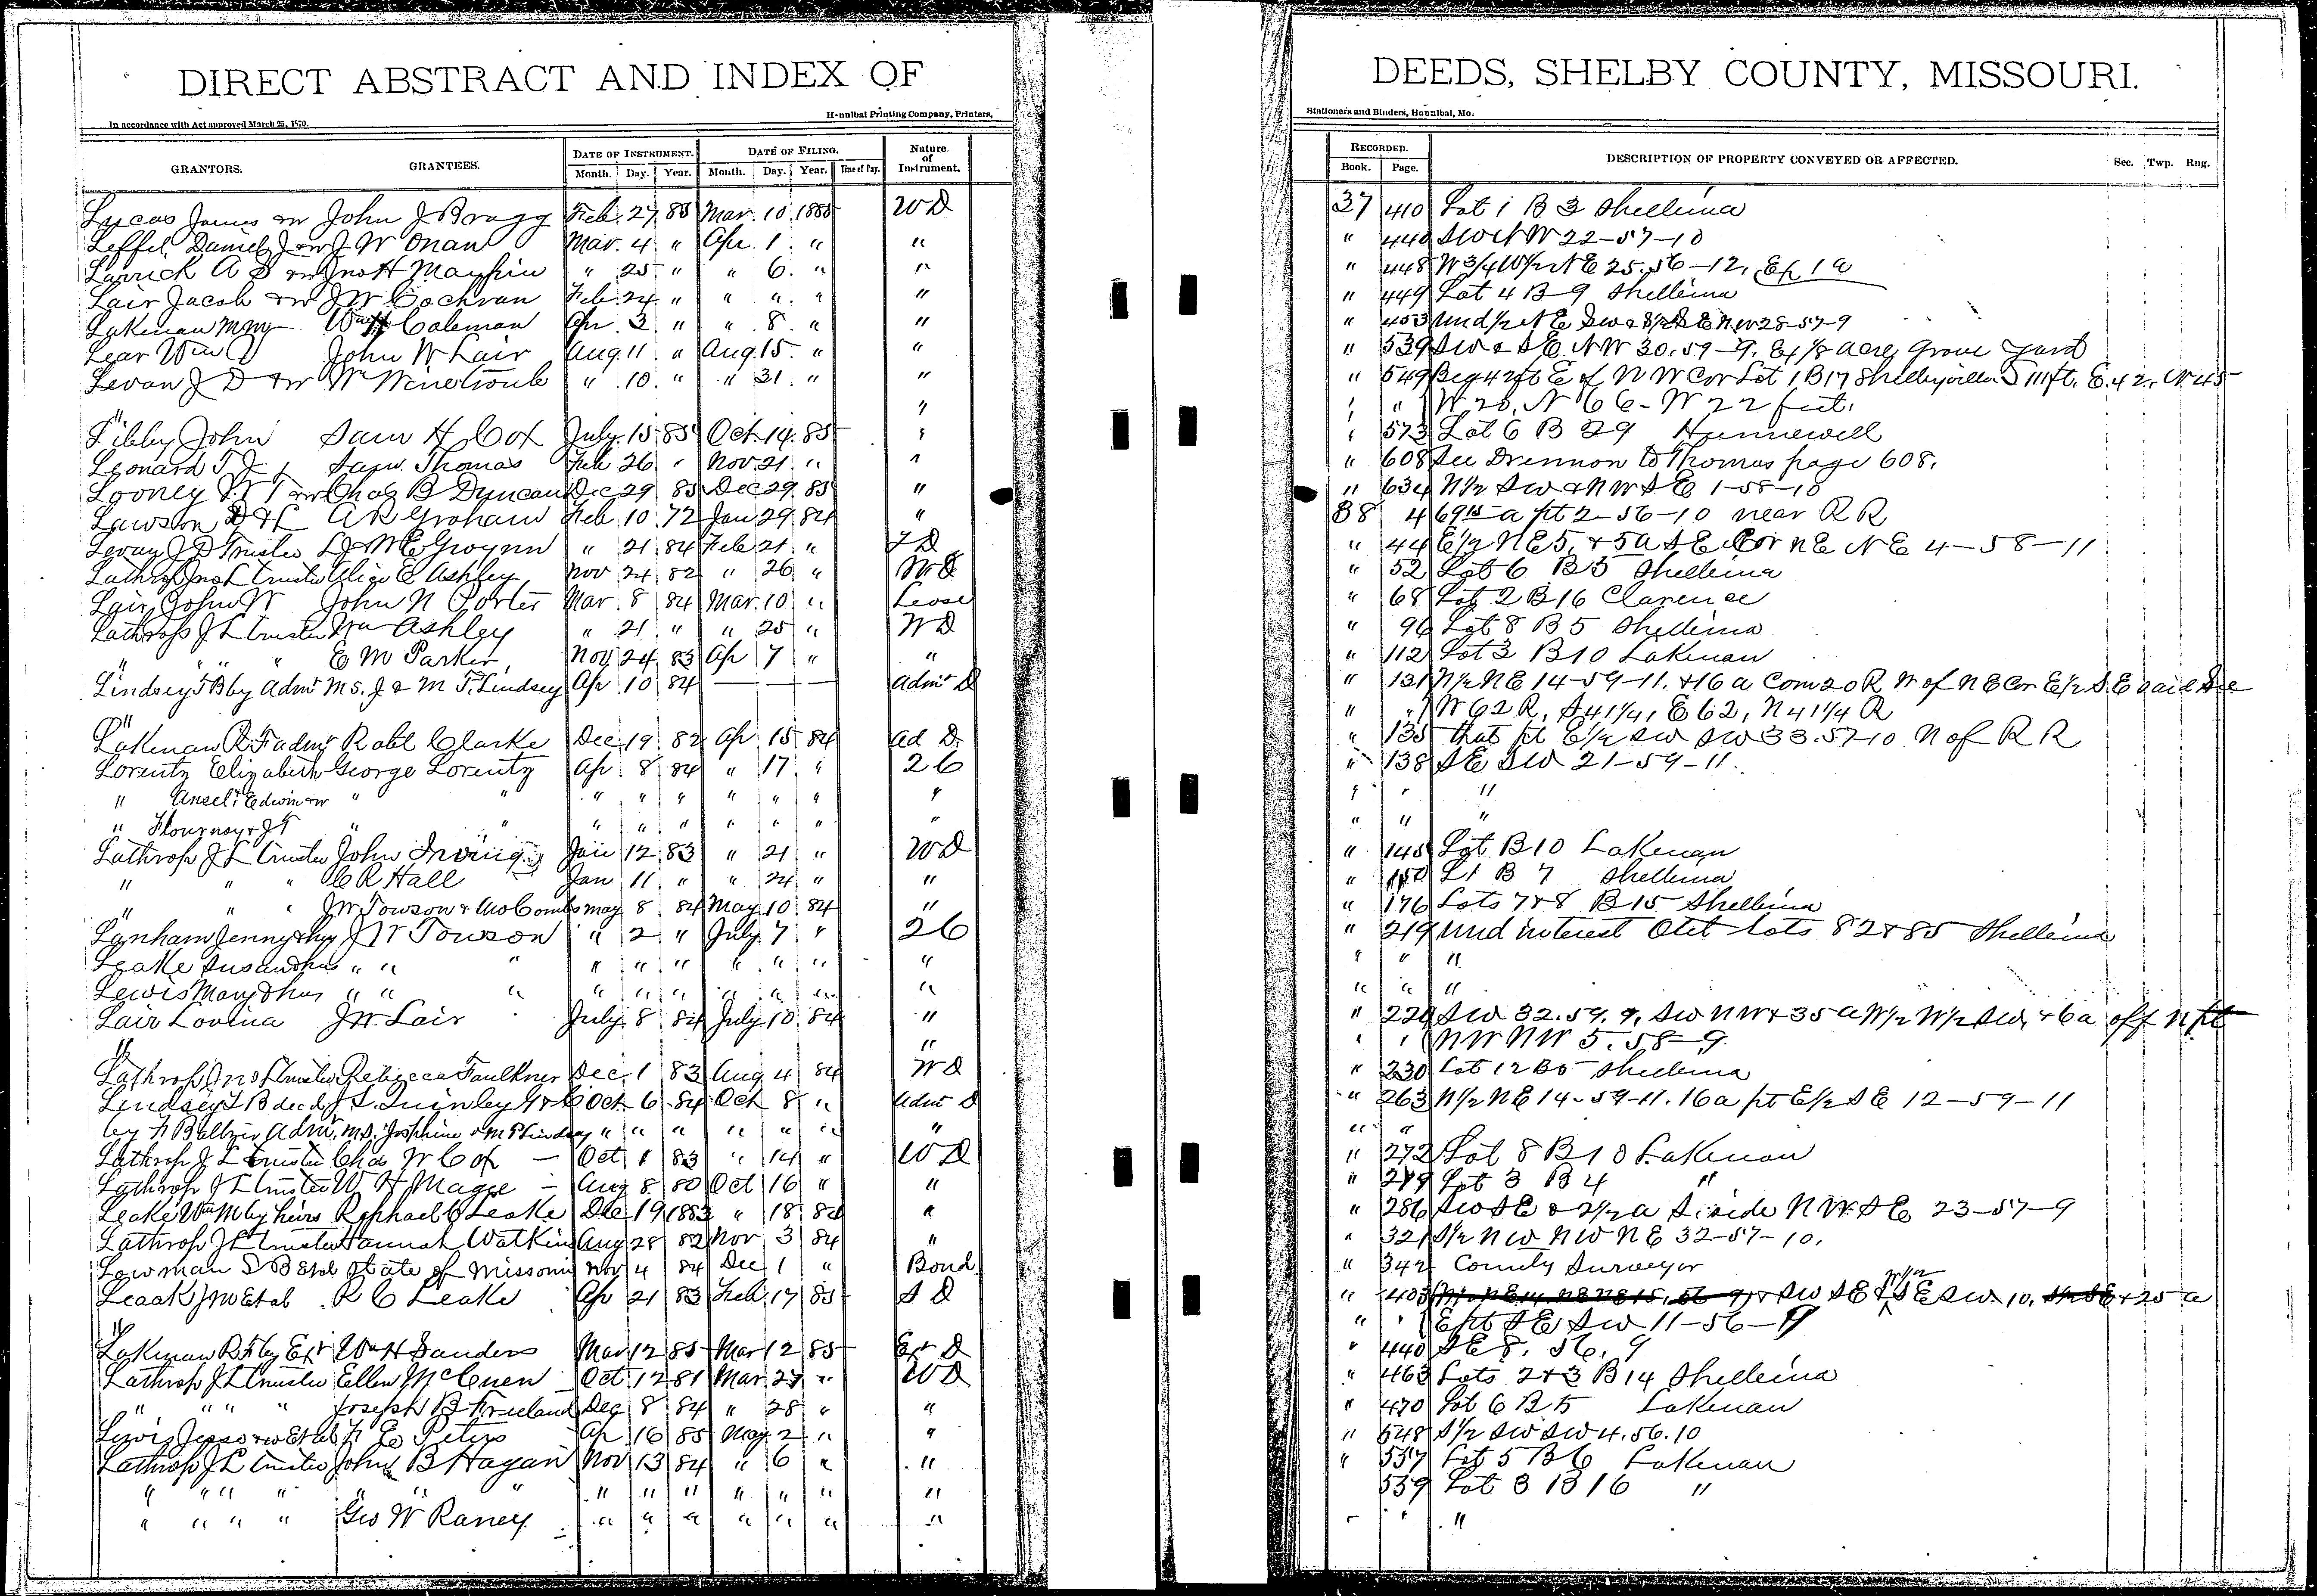 DIRECT ABSTRACT AND INDEX OF DEEDS, SHELBY COUNTY, MISSOURI.
In accordance with Act approved March 25, 1870. Hannibal Printing Company, Printers, Stationers and Binders, Hannibal, Mo.
GRANTORS. GRANTEES. DATE OF INSTRUMENT. DATE OF FILING. Nature of Instrument. RECORDED. DESCRIPTION OF PROPERTY CONVEYED OR AFFECTED. Sec. Twp. Rng.
Month. Day. Year. Month. Day. Year. Time of Day. Book. Page.
Lucas James & w John J Bragg Feb 27 85 Mar 10 1885 W D 37 410 Lot 1 B 3 Shelbina
Leffel Daniel J & w J W Onan Mar 4 " Apr 1 " " " 440 SW NW 22-57-10
Larrick A S & w Jno H Maupin " 25 " " 6 " " " 448 W 3/4 W 1/2 NE 25.56-12, Ex 1 a
Lair Jacob & w J W Cochran Feb 24 " " " " " " 449 Lot 4 B 9 Shelbina
Lakenan M M Wm H Coleman Apr 3 " " 8 " " " 453 Und 1/2 NE SW & S 1/2 SE NW 28-57-9
Lear Wm D John W Lair Aug 11 " Aug 15 " " " 539 SW & SE NW 30.59-9. Ex 1/8 acre Grave Yard
Levan J D & w W Winetroub " 10 " " 31 " " " 549 Beg 42 ft E of N W Cor Lot 1 B 17 Shelbyville. S 111 ft. E. 42, N 45
" " " " W 20, N 66 - W 22 feet.
Libby John Sam H Cox July 15 85 Oct 14 85 " " 573 Lot 6 B 29 Hunnewell
Leonard T J Saml. Thomas Feb 26 " Nov 21 " " " 608 See Drennon to Thomas page 608.
Looney W T & w Chas B Duncan Dec 29 85 Dec 29 85 " " 634 N 1/2 SW & NW SE 1-58-10
Lawson D & L A R Graham Feb 10 72 Jan 29 84 " 38 4 69 15 a pt 2-56-10 near R R
Levan J D Trustee L J & M E Gwynn " 21 84 Feb 21 " T D " 44 E 1/2 NE 5, & 5 a SE Cor NE NE 4-58-11
Lathrop Jno L trustee Alice E Ashley Nov 24 82 " 26 " W D " 52 Lot 6 B 5 Shelbina
Lair John W John N Porter Mar 8 84 Mar 10 " Lease " 68 Lot 2 B 16 Clarence
Lathrop J L trustee Wm Ashley " 21 " " 25 " W D " 96 Lot 8 B 5 Shelbina
" " " " E M Parker, Nov 24 83 Ap 7 " " " 112 Lot 3 B 10 Lakenan
Lindsey T B by Admr M S. J & M F. Lindsey Ap 10 84 — — — Admr D " 131 N 1/2 NE 14-59-11. & 16 a Com 20 R W of NE Cor E 1/2 SE said Sec
" " " W 62 R, S 41 1/4, E 62, N 41 1/4 R
Lakenan R F admr Robt Clarke Dec 19 82 Ap 15 84 Ad D " 135 that pt E 1/2 SW SW 33.57-10 N of R R
Lorentz Elizabeth George Lorentz Ap 8 84 " 17 " 26 " 138 SE SW 21-59-11.
" Ansel; Edwin & w " " " " " " " " " " " "
" Flournoy & J T " " " " " " " " " " " "
Lathrop J L trustee John Irving Jan 12 83 " 21 " W D " 145 Lot B 10 Lakenan
" " " C R Hall Jan 11 " " 24 " " " 150 L 1 B 7 Shelbina
" " " J W Towson & McCombs May 8 84 May 10 84 " " 176 Lots 7 & 8 B 15 Shelbina
Lanham Jenny & hus J W Towson " 2 " July 7 " 26 " 219 Und interest Otlt lots 82 & 85 Shelbina
Leake Susan & hus " " " " " " " " " " " " "
Lewis Mary & hus " " " " " " " " " " " " "
Lair Lovina J W. Lair July 8 84 July 10 84 " " 220 SW 32.59.9, SW NW & 35 a W 1/2 W 1/2 SW, & 6 a off N pt
" " " " NW NW 5.58-9.
Lathrop Jno L trustee Rebecca Faulkner Dec 1 83 Aug 4 84 W D " 230 Lot 12 B 5 Shelbina
Lindsey T B decd J L. Quinley G & C Oct 6 84 Oct 8 " Admr D " 263 N 1/2 NE 14-59-11. 16 a pt E 1/2 SE 12-59-11
by Admr. M S. Josephine & M F Lindsey " " " " " " " " "
Lathrop J L trustee Chas W Cox — Oct 1 83 " 14 " W D " 272 Lot 8 B 10 Lakenan
Lathrop J L trustee W H Magee — Aug 8 80 Oct 16 " " " 279 Lot 3 B 4 "
Leake Wm M by heirs Raphael C Leake Dec 19 1883 " 18 84 " " 286 SW SE & 2 1/2 a S side NW SE 23-57-9
Lathrop J L trustee Hannah Watkins Aug 28 82 Nov 3 84 " " 321 S 1/2 NW NW NE 32-57-10.
Lowman D B etal State of Missouri Nov 4 84 Dec 1 " Bond " 342 County Surveyor
Leaak J M Et al R C Leake Ap 21 83 Feb 17 85 S D " 403 & SW SE & SE SW 10, & 25 a
" " " E pt SE SW 11-56-9
Lakenan R F by Exr Wm H Sanders Mar 12 85 Mar 12 85 Exr D " 440 SE 8. 56. 9
Lathrop J L trustee Ellen McCuen Oct 12 81 Mar 27 " W D " 463 Lots 2 & 3 B 14 Shelbina
" " " " Joseph B Freeland Dec 8 84 " 28 " " " 470 Lot 6 B 5 Lakenan
Lewis Jesse & w Et al H E Peters Ap 16 85 May 2 " " " 548 S 1/2 SW SW 4.56.10
Lathrop J L trustee John B Hagan Nov 13 84 " 6 " " " 557 Lot 5 B 6 Lakenan
" " " " " " " " " " " " " 559 Lot 3 B 16 "
" " " " Geo W Raney " " " " " " " " "